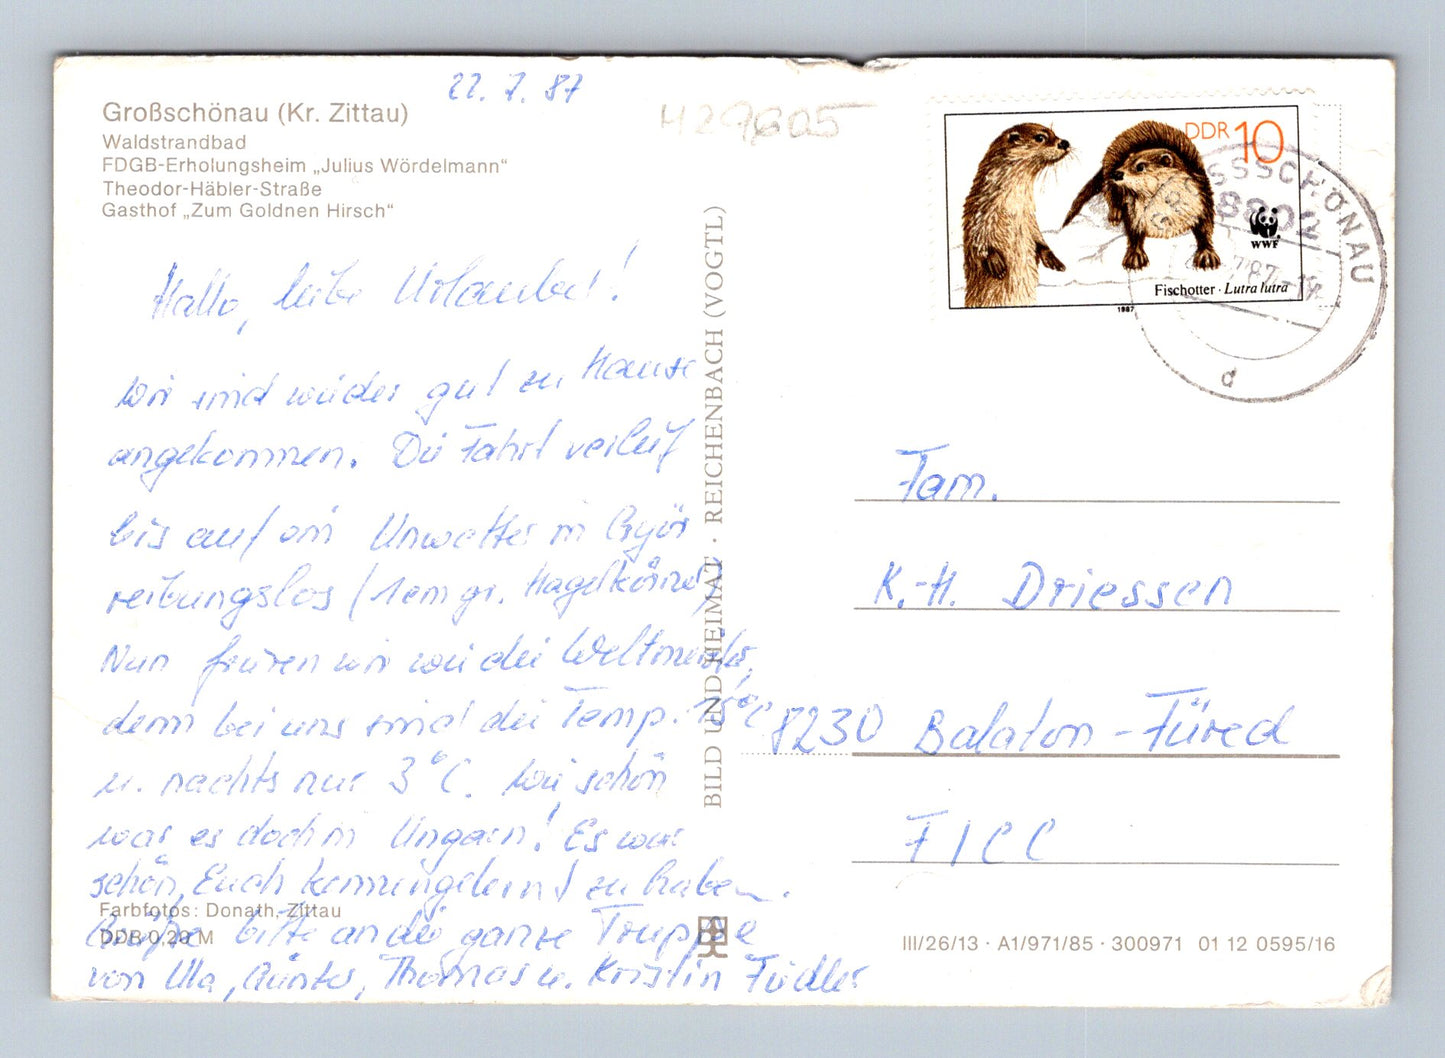 22. 7. 87
Großschönau (Kr. Zittau)
Waldstrandbad
FDGB-Erholungsheim „Julius Wördelmann“
Theodor-Häbler-Straße
Gasthof „Zum Goldnen Hirsch“
H29605
Hallo, liebe Urlauber!
Wir sind wieder gut zu Hause
angekommen. Die Fahrt verlief
bis auf ein Unwetter in Györ
reibungslos (1cm gr. Hagelkörner)
Nun frieren wir wie die Weltmeister,
denn bei uns sind die Temp. °C
u. nachts nur 3°C. Wie schön
war es doch in Ungarn! Es war
schön, Euch kennengelernt zu haben.
Grüße bitte an die ganze Truppe
von Ula, Günter, Thomas u. Kristin Fiedler
Farbfotos: Donath, Zittau
DDR 0,20 M
BILD UND HEIMAT · REICHENBACH (VOGTL)
DDR 10
WWF
Fischotter · Lutra lutra
1987
GROSSSCHÖNAU
8802
d
Fam.
K.-H. Driessen
8230 Balaton-Füred
FICC
III/26/13 · A1/971/85 · 300971 01 12 0595/16